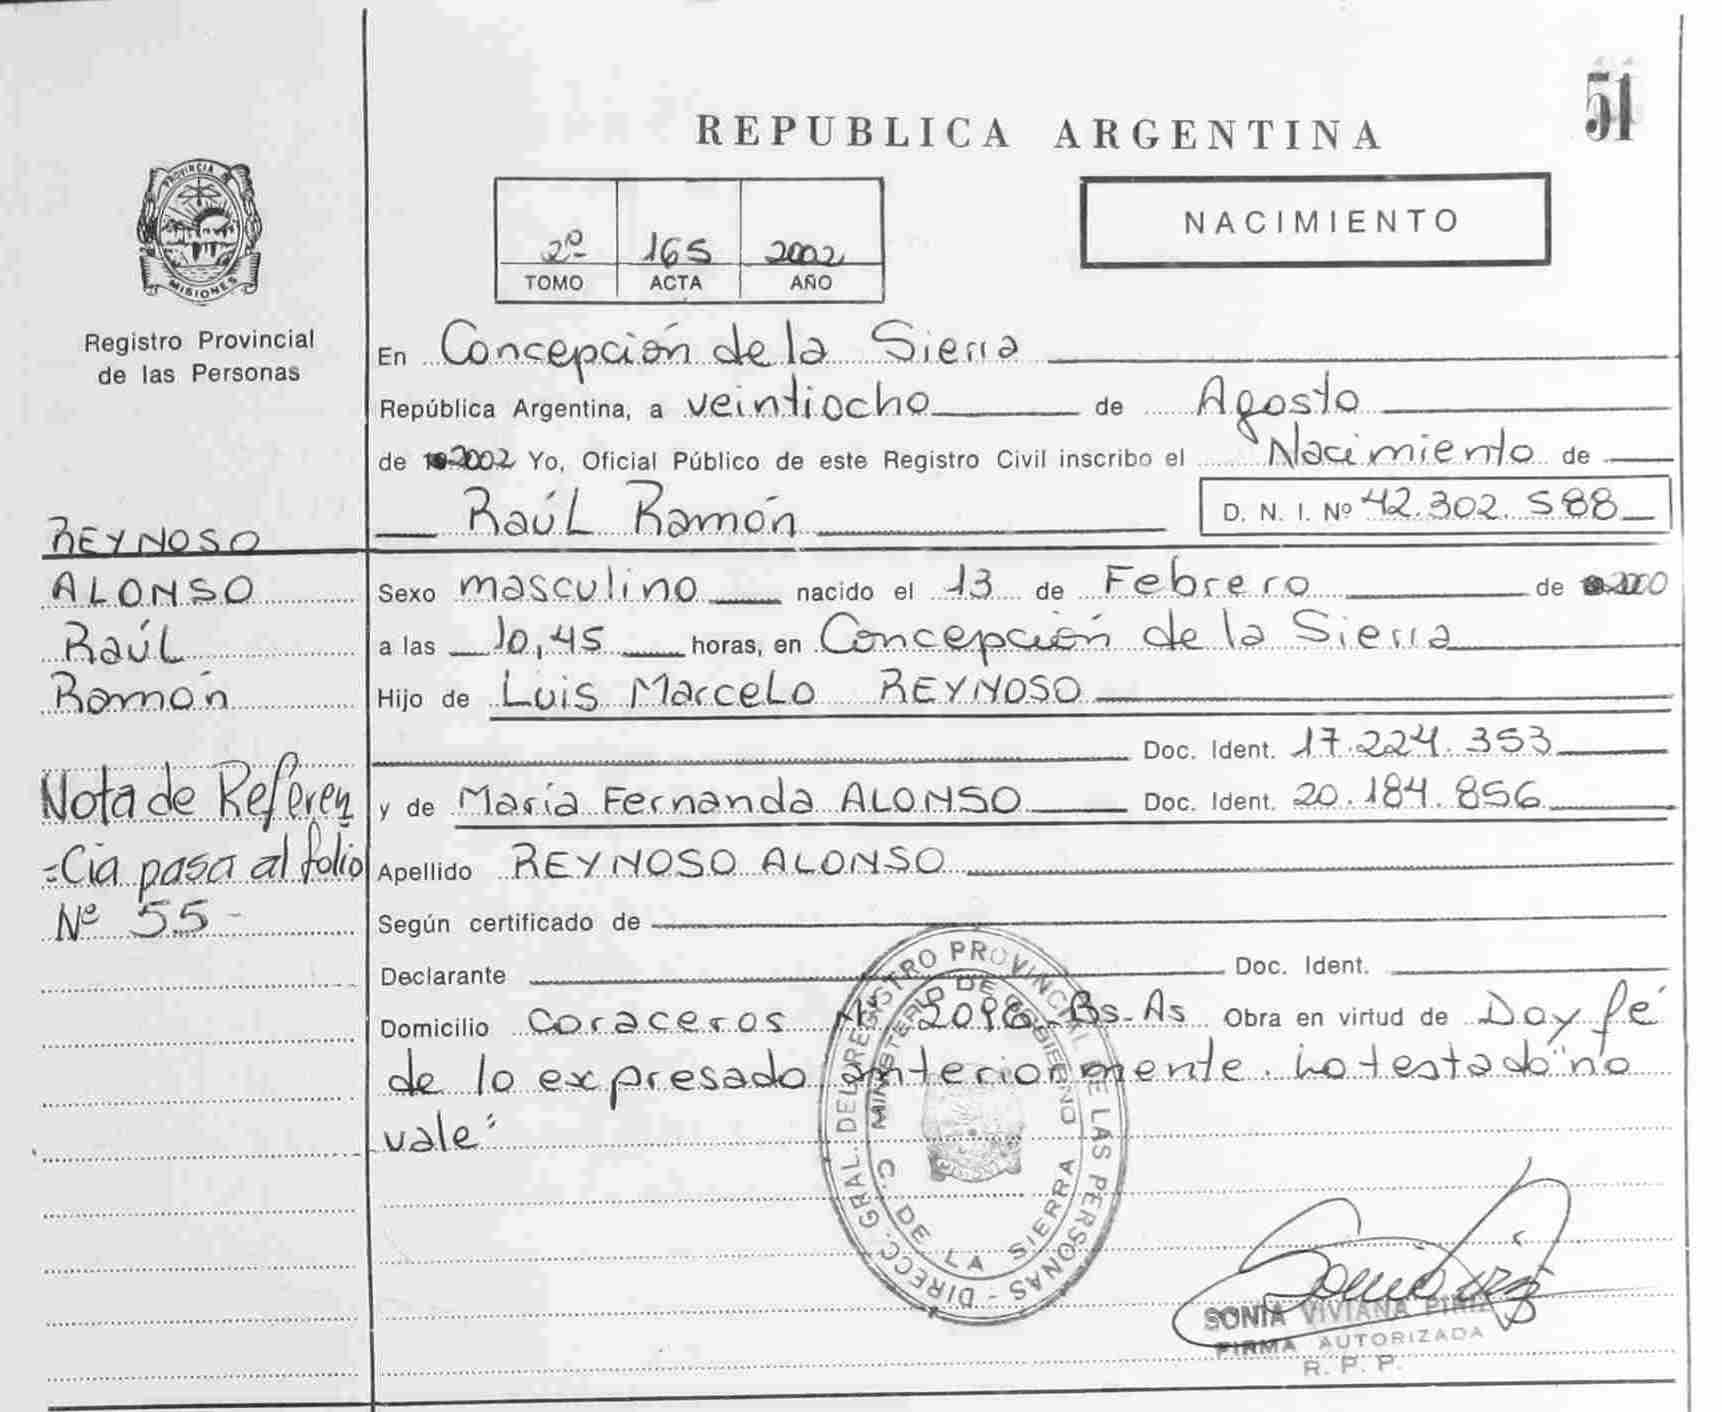 51
REPUBLICA ARGENTINA
NACIMIENTO
2º 165 2002
TOMO ACTA AÑO
PROVINCIA DE
MISIONES
Registro Provincial
de las Personas
En Concepción de la Sierra
República Argentina, a veintiocho de Agosto
de 2002 Yo, Oficial Público de este Registro Civil inscribo el Nacimiento de
Raúl Ramón D. N. I. Nº 42.302.588
REYNOSO
ALONSO
Raúl
Ramón
Sexo masculino nacido el 13 de Febrero de 2000
a las 10,45 horas, en Concepción de la Sierra
Hijo de Luis Marcelo REYNOSO
Doc. Ident. 17.224.353
y de María Fernanda ALONSO Doc. Ident. 20.184.856
Nota de Referen
=Cia pasa al folio
Nº 55-
Apellido REYNOSO ALONSO
Según certificado de
Declarante Doc. Ident.
Domicilio Coraceros Bs-As Obra en virtud de Doy fé
de lo expresado anteriormente. Lo testado "no
vale"
DIRECC. GRAL. DEL REGISTRO PROVINCIAL DE LAS PERSONAS -
MINISTERIO DE GOBIERNO
C. DE LA SIERRA
SONIA VIVIANA
FIRMA AUTORIZADA
R. P. P.